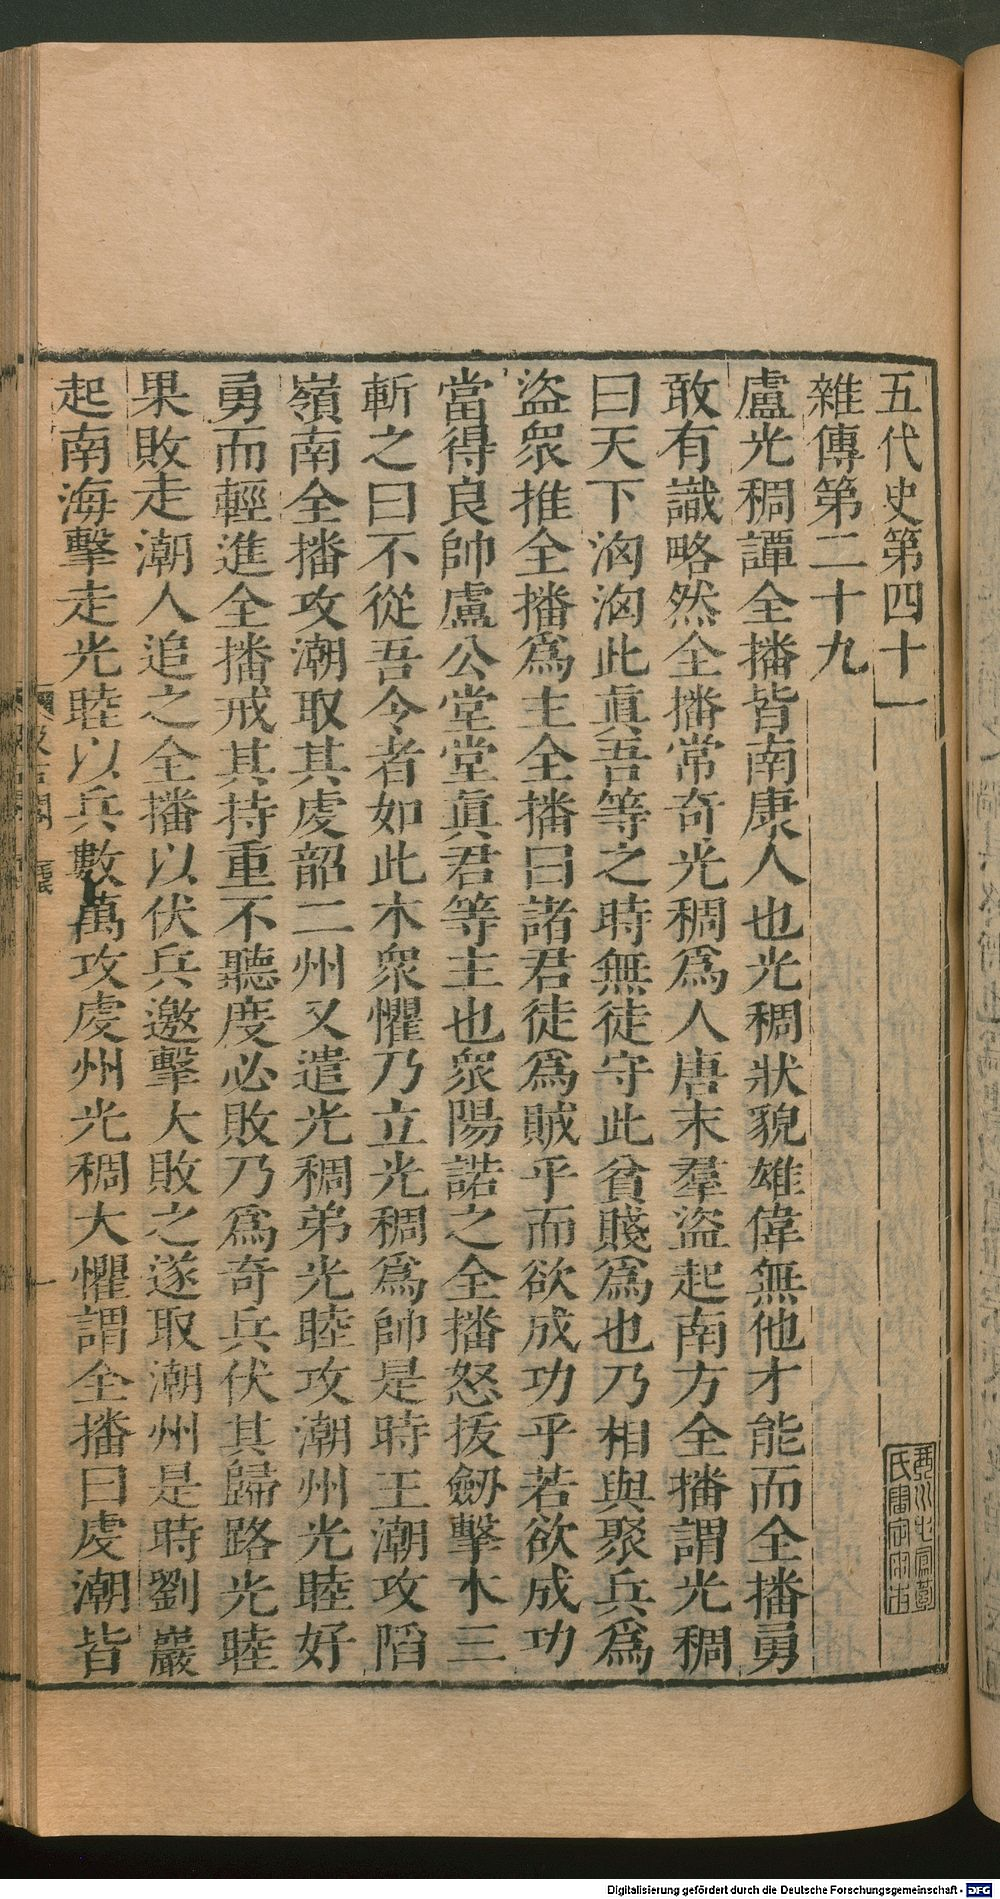 五代史第四十一
雜傳第二十九
盧光稠譚全播皆南康人也光稠狀貌雄偉無他才能而全播勇
敢有識略然全播常奇光稠爲人唐末羣盜起南方全播謂光稠
曰天下洶洶此眞吾等之時無徒守此貧賤爲也乃相與聚兵爲
盜衆推全播爲主全播曰諸君徒爲賊乎而欲成功乎若欲成功
當得良帥盧公堂堂眞君等主也衆陽諾之全播怒拔劒擊木三
斬之曰不從吾令者如此木衆懼乃立光稠爲帥是時王潮攻陷
嶺南全播攻潮取其虔韶二州又遣光稠弟光睦攻潮州光睦好
勇而輕進全播戒其持重不聽度必敗乃爲奇兵伏其歸路光睦
果敗走潮人追之全播以伏兵邀擊大敗之遂取潮州是時劉巖
起南海擊走光睦以兵數萬攻虔州光稠大懼謂全播曰虔潮皆
一
Digitalisierung gefördert durch die Deutsche Forschungsgemeinschaft - DFG